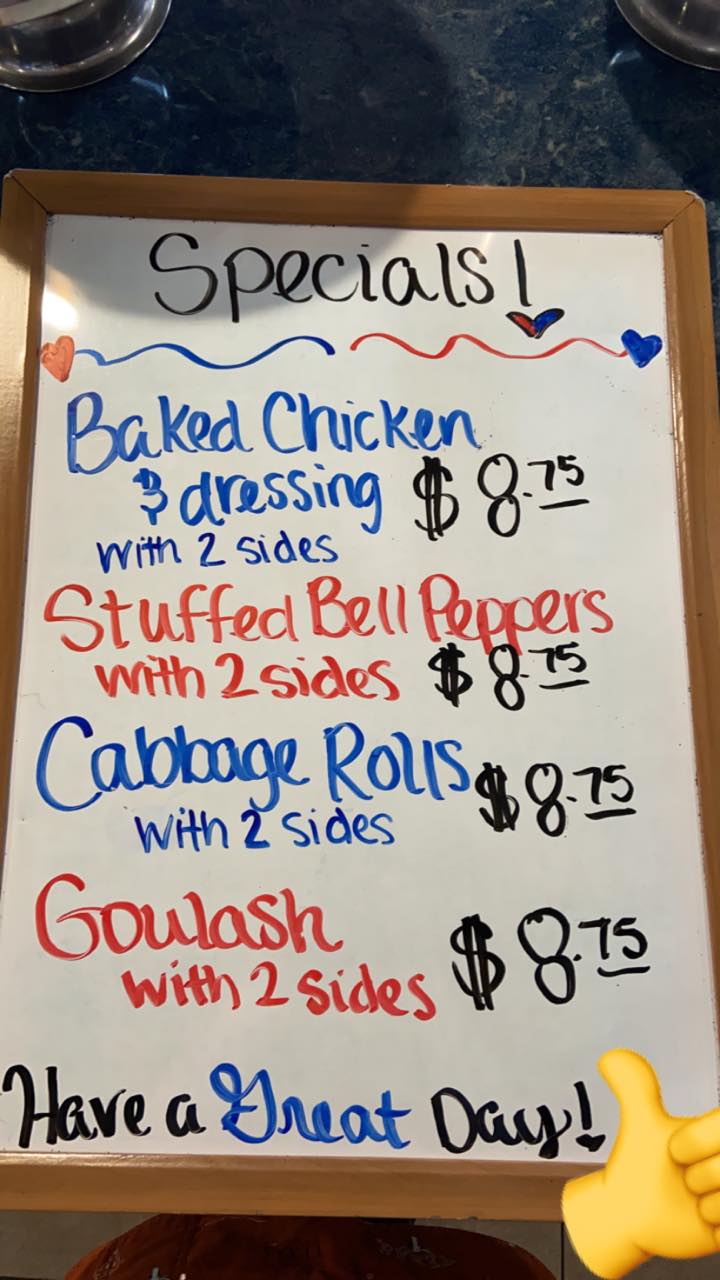 Specials!
Baked Chicken
& dressing $8.75
with 2 sides
Stuffed Bell Peppers
with 2 sides $8.75
Cabbage Rolls $8.75
with 2 sides
Goulash
with 2 sides $8.75
Have a Great Day!